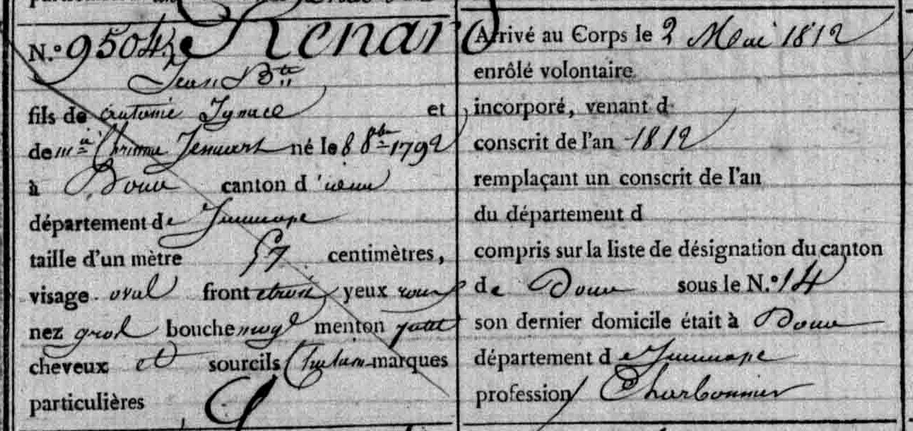 N.° 9504 Renard
Jean Bte
fils de Antoine Ignace et
de m.ie Christine né le 8 8bre 1792
à Dour canton d idem
département de Jemmape
taille d'un mètre 57 centimètres,
visage oval front étroit yeux roux
nez gros bouche moye menton petit
cheveux et sourcils Chatain marques
particulières
Arrivé au Corps le 2 Mai 1812
enrôlé volontaire
incorporé, venant d
conscrit de l'an 1812
remplaçant un conscrit de l'an
du département d
compris sur la liste de désignation du canton
de Dour sous le N.° 14
son dernier domicile était à Dour
département de Jemmape
profession Charbonnier